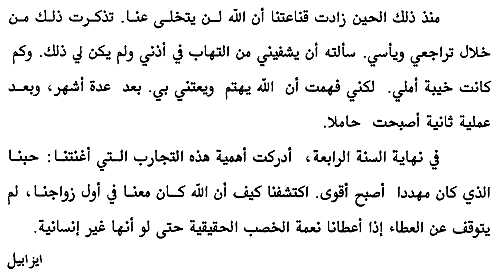 منذ ذلك الحين زادت قناعتنا أن الله لن يتخلى عنا. تذكرت ذلك من
خلال تراجعي ويأسي. سألته أن يشفيني من التهاب في أذني ولم يكن لي ذلك. وكم
كانت خيبة أملي. لكني فهمت أن الله يهتم ويعتني بي. بعد عدة أشهر، وبعد
عملية ثانية أصبحت حاملا.
في نهاية السنة الرابعة، أدركت أهمية هذه التجارب التي أغنتنا: حبنا
الذي كان مهددا أصبح أقوى. اكتشفنا كيف أن الله كان معنا في أول زواجنا، لم
يتوقف عن العطاء إذا أعطانا نعمة الخصب الحقيقية حتى لو أنها غير إنسانية.
ايزابيل